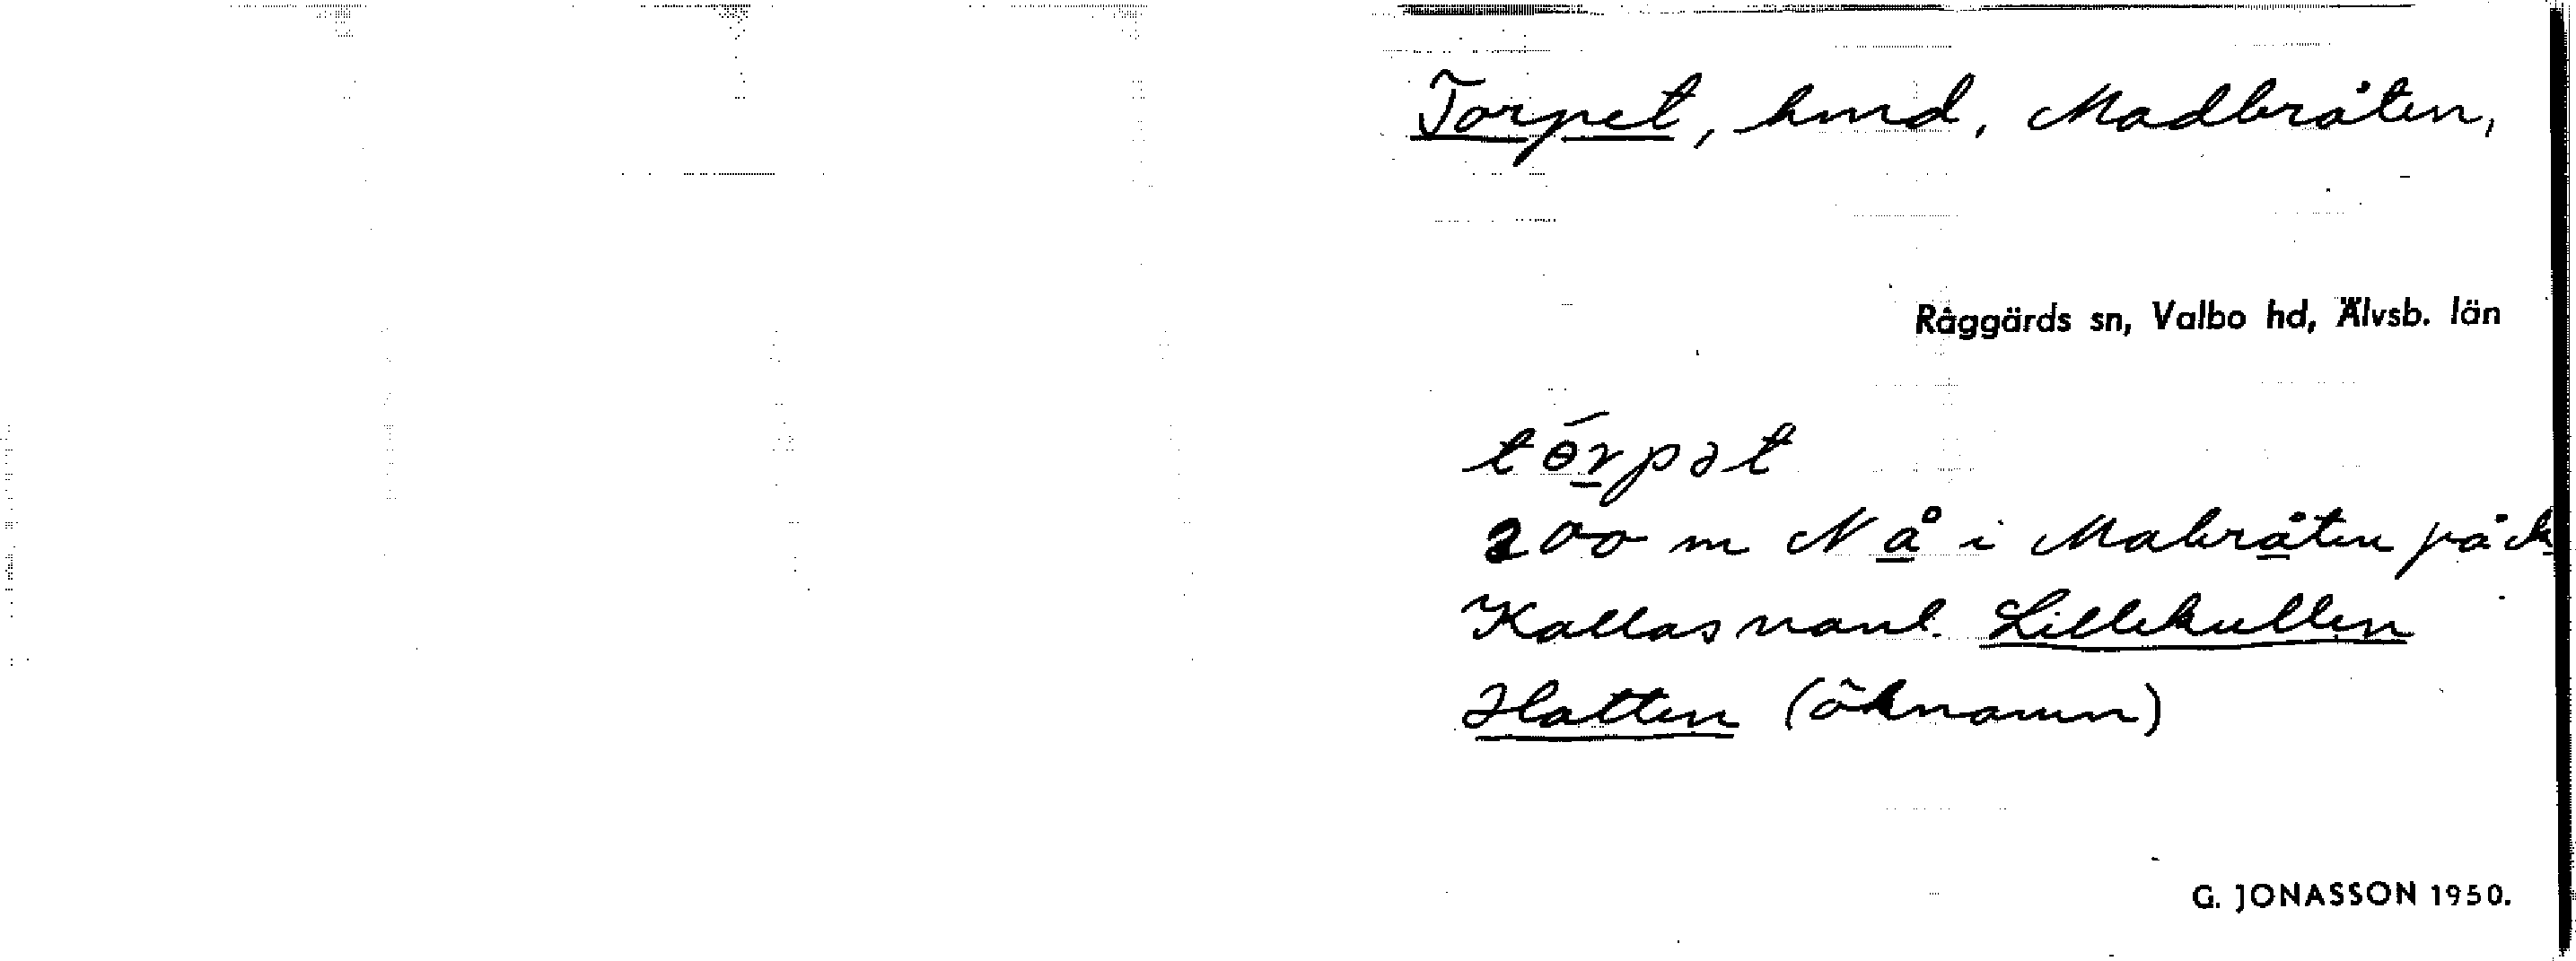 Torpet, hmd, Madbråten,
Råggärds sn, Valbo hd, Älvsb. län
tɵ́rpət
200 m N å i Mabråten på ek
Kallas vanl. Lillekullen
Hatten (öknamn)
G. JONASSON 1950.